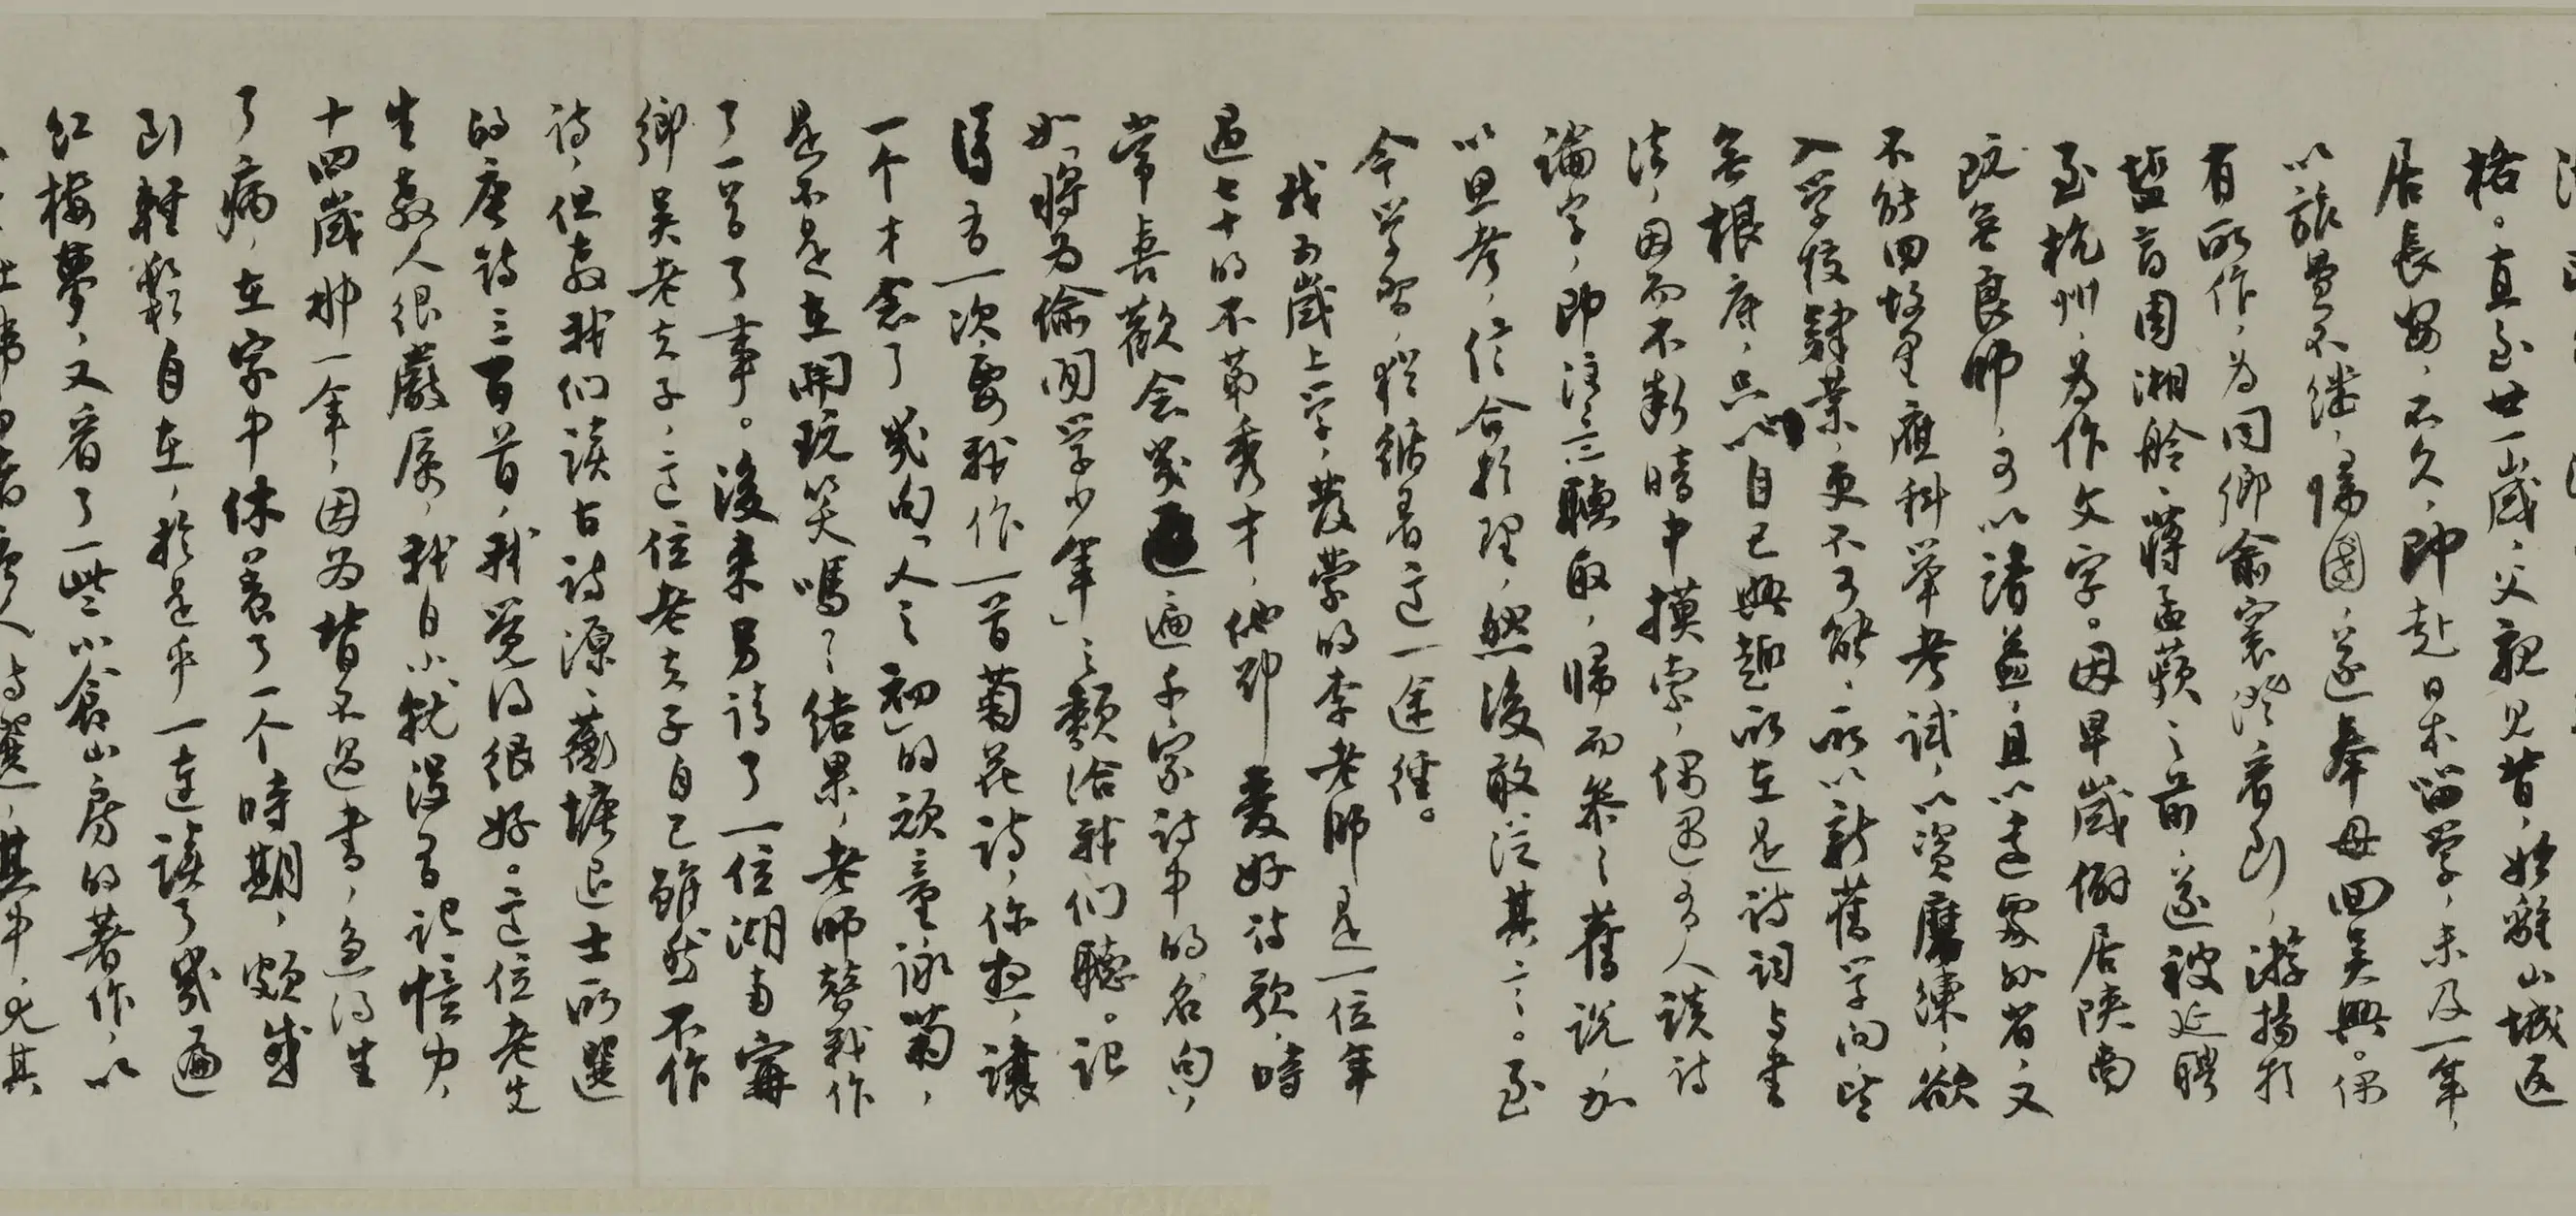 格。直至廿一歲，父親見背，始離山城返
居長安，不久，即赴日本留學，未及一年，
以旅費不繼，歸國，遂奉母回吳興。偶
有所作，为同鄉俞寰澄看到，游揚於
蜇音周湘舲、蔣孟蘋之前，遂被延聘
至杭州，为作文字。因早歲僻居陝南
既無良師，可以請益，且以遠處外省，又
不能回故里應科舉考試，以資磨練，欲
入學校肄業，更不可能，所以新舊學问皆
無根底，只以自己興趣所在是詩詞与書
法，因而不斷暗中摸索，偶遇有人談詩
論字，即注意聽取，歸而參之舊說，加
以思考，信合於理，然後敢从其言。至
今学習，猶循着这一途徑。
我五歲上学，發蒙的李老師是一位年
過七十的不第秀才，他即愛好詩歌，時
常喜歡会幾遍千家詩中的名句，
如「將为偷閒学少年」之類给我们聽。記
得有一次，要我作一首菊花詩，你想，讓
一个才念了幾句「人之初」的顽童詠菊，
是不是在開玩笑嗎？结果，老師替我作
了一首了事。後来另請了一位湖南寧
鄉吳老夫子，这位老夫子自己雖然不作
詩，但教我们讀古詩源、蘅塘退士所選
的唐詩三百首，我覺得很好。这位老先
生教人很嚴厲，我自小就没有記憶力，
十四歲那一年，因为背不過書，急得生
了病，在家中休養了一个時期，頗感
到輕鬆自在，於是乎一連讀了幾遍
紅樓夢，又看了一些小倉山房的著作，以